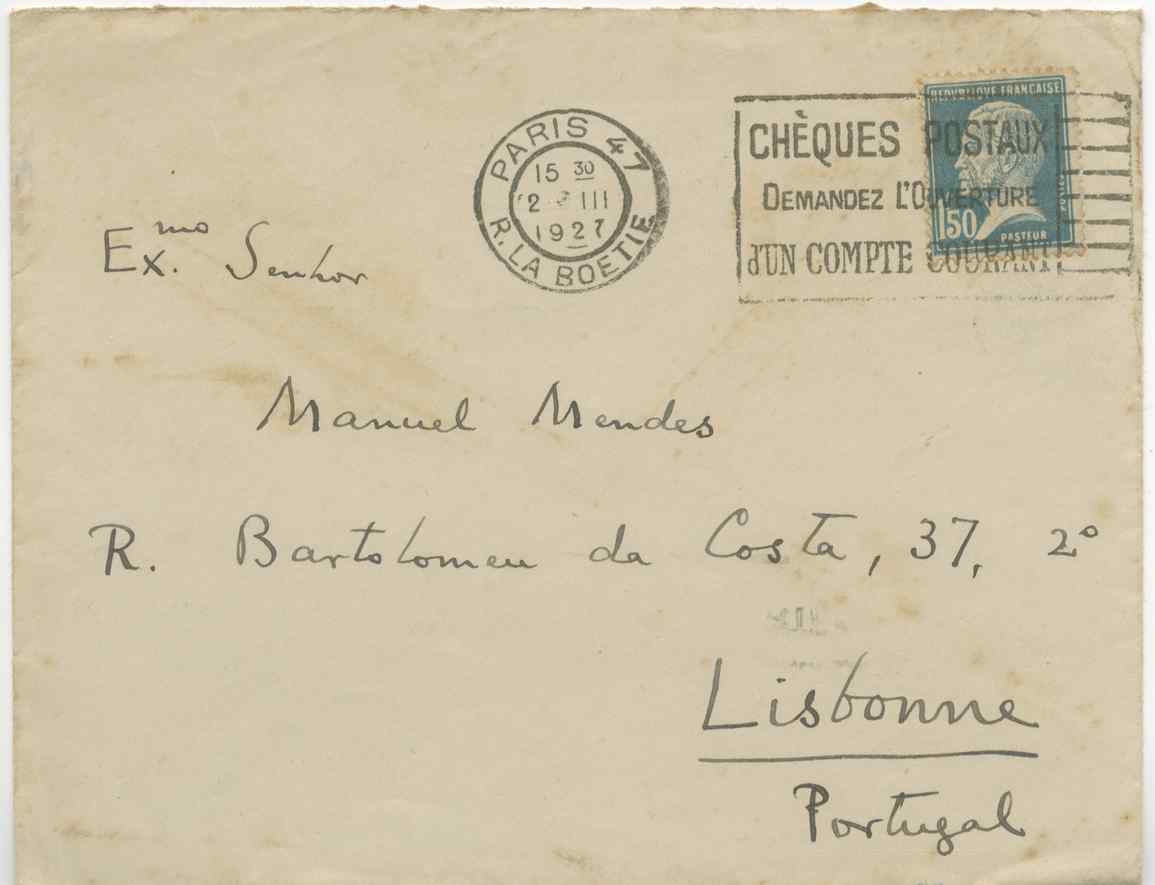 PARIS 47
15 30
2 III
1927
R. LA BOETIE
CHÈQUES POSTAUX
DEMANDEZ L'OUVERTURE
d'UN COMPTE COURANT
REPUBLIQUE FRANÇAISE
POSTES
1F50
PASTEUR
Exmo. Senhor
Manuel Mendes
R. Bartolomeu da Costa, 37, 2º
Lisbonne
Portugal